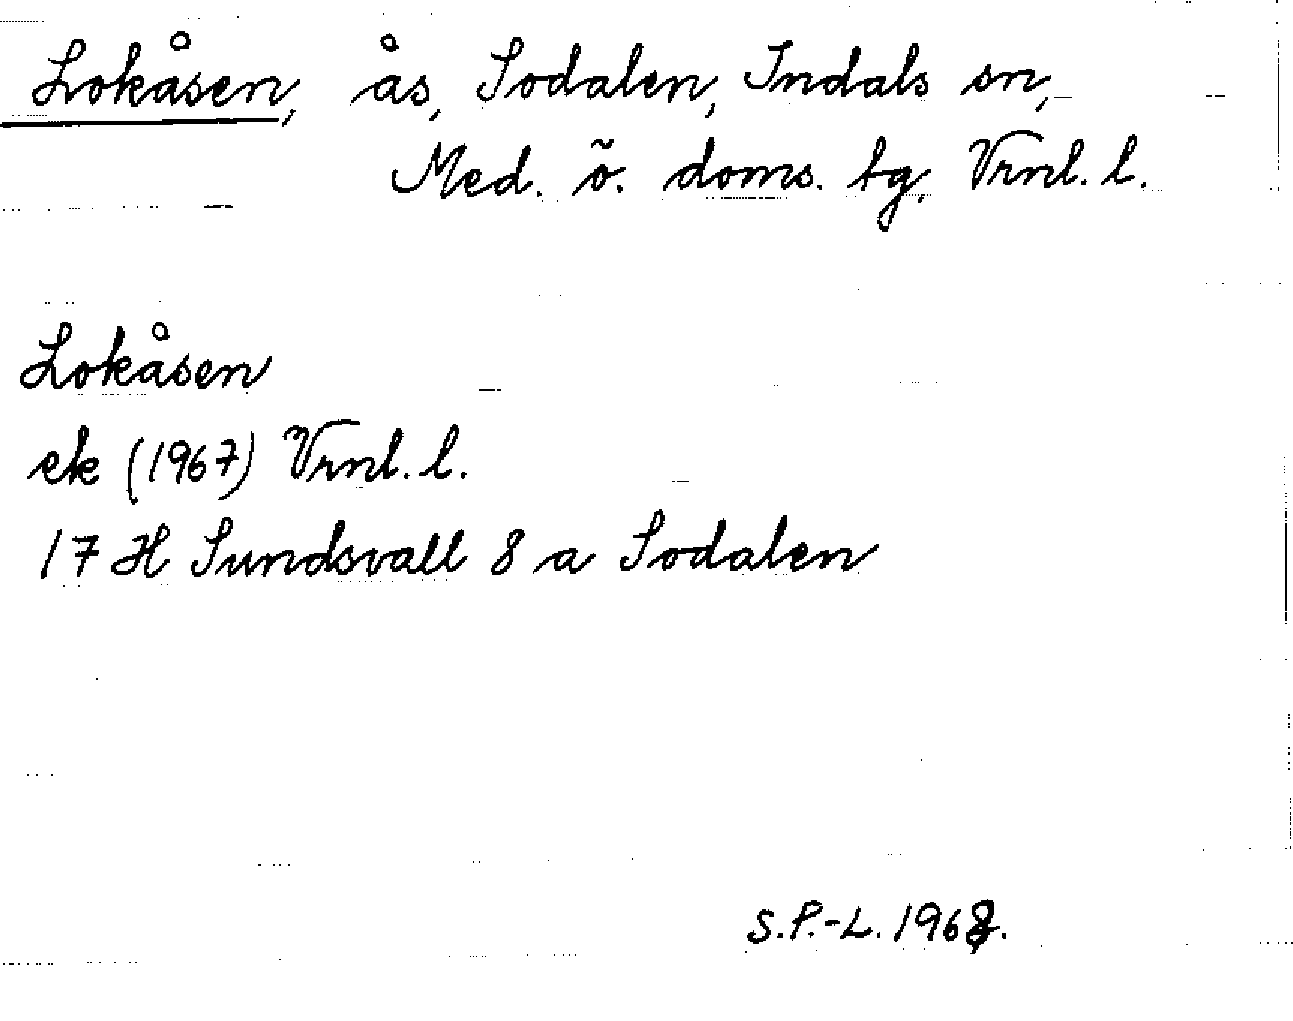 Lokåsen, ås, Sodalen, Indals sn,
Med. ö. doms. tg, Vrnl. l.
Lokåsen
ek (1967) Vrnl. l.
17 H Sundsvall 8 a Sodalen
S.P.-L. 1968.